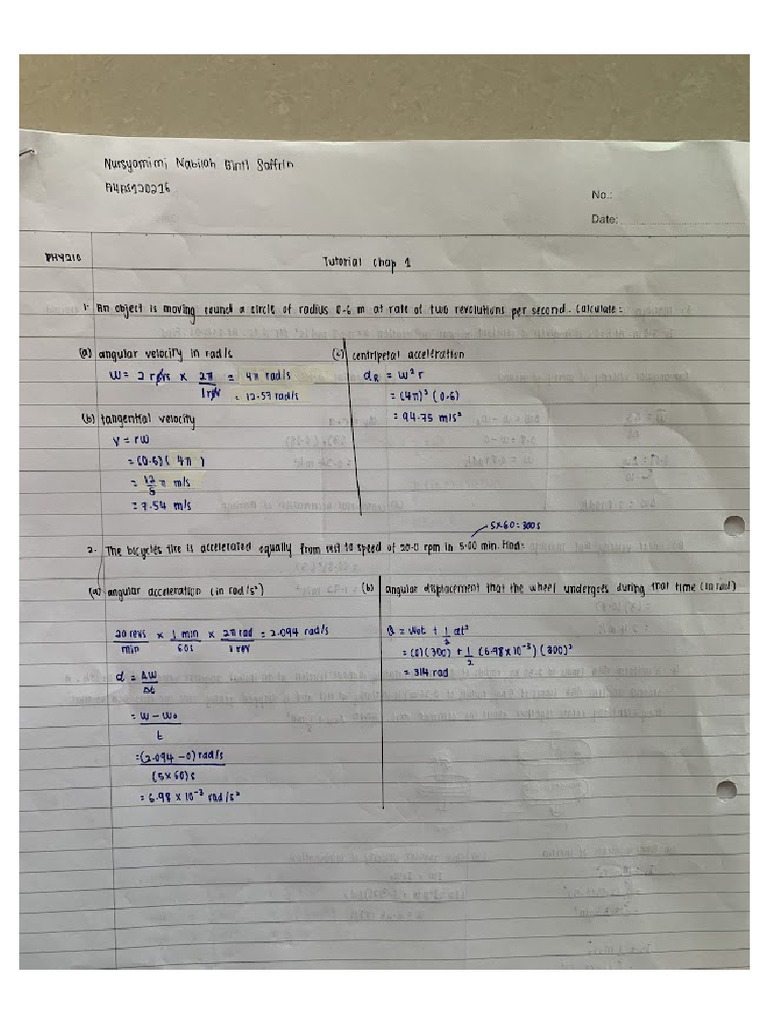 Nursyamimi Nabilah Binti Saffrin
No.:
Date:
PHY210
Tutorial Chap 1
1. An object is moving round a circle of radius 0.6 m at rate of two revolutions per second. Calculate:
(a) angular velocity in rad/s
W = 2 revs × 2π/1rev = 4π rad/s
= 12.57 rad/s
(b) tangential velocity
V = rW
= (0.6)(4π)
= 12/5 π m/s
= 7.54 m/s
(c) centripetal acceleration
aR = W²r
= (4π)²(0.6)
= 94.75 m/s²
5×60=300s
2. The bicycles tire is accelerated equally from rest to speed of 20.0 rpm in 5.00 min. Find:
(a) angular acceleration (in rad/s²)
20 revs/min × 1 min/60s × 2π rad/1 rev = 2.094 rad/s
α = ΔW/Δt
= W − W₀/t
= (2.094 − 0) rad/s/(5×60)s
= 6.98 × 10⁻³ rad/s²
(b) angular displacement that the wheel undergoes during that time (in rad)
θ = W₀t + 1/2 αt²
= (0)(300) + 1/2 (6.98×10⁻³)(300)²
= 314 rad